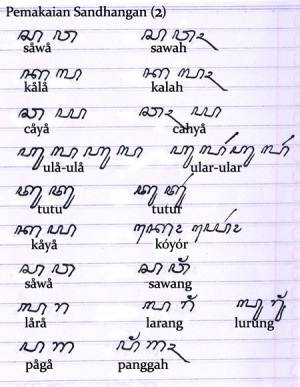 Pemakaian Sandhangan (2)
ꦱꦮ ꦱꦮꦃ
såwå sawah
ꦏꦭ ꦏꦭꦃ
kålå kalah
ꦕꦪ ꦕꦃꦪ
cåyå cahyå
ꦲꦸꦭꦲꦸꦭ ꦲꦸꦭꦂꦲꦸꦭꦂ
ulå-ulå ular-ular
ꦠꦸꦠꦸ ꦠꦸꦠꦸꦂ
tutu tutur
ꦏꦪ ꦏꦺꦴꦪꦺꦴꦂ
kåyå kóyór
ꦱꦮ ꦱꦮꦁ
såwå sawang
ꦭꦫ ꦭꦫꦁ ꦭꦸꦫꦸꦁ
lårå larang lurung
ꦥꦒ ꦥꦁꦒꦃ
pågå panggah